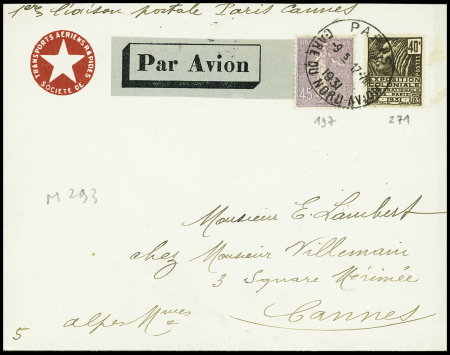 1ere liaison postale Paris Cannes
TRANSPORTS AÉRIENS RAPIDES
SOCIÉTÉ DE
Par Avion
45
PARIS
GARE DU NORD AVION
1931
40c
EXPOSITION
COLONIALE
INTERNATIONALE
PARIS
1931
197
271
M 293
Monsieur E. Lambert
chez Monsieur Villemain
3 Square Mérimée
Cannes
alpes Mmes
5